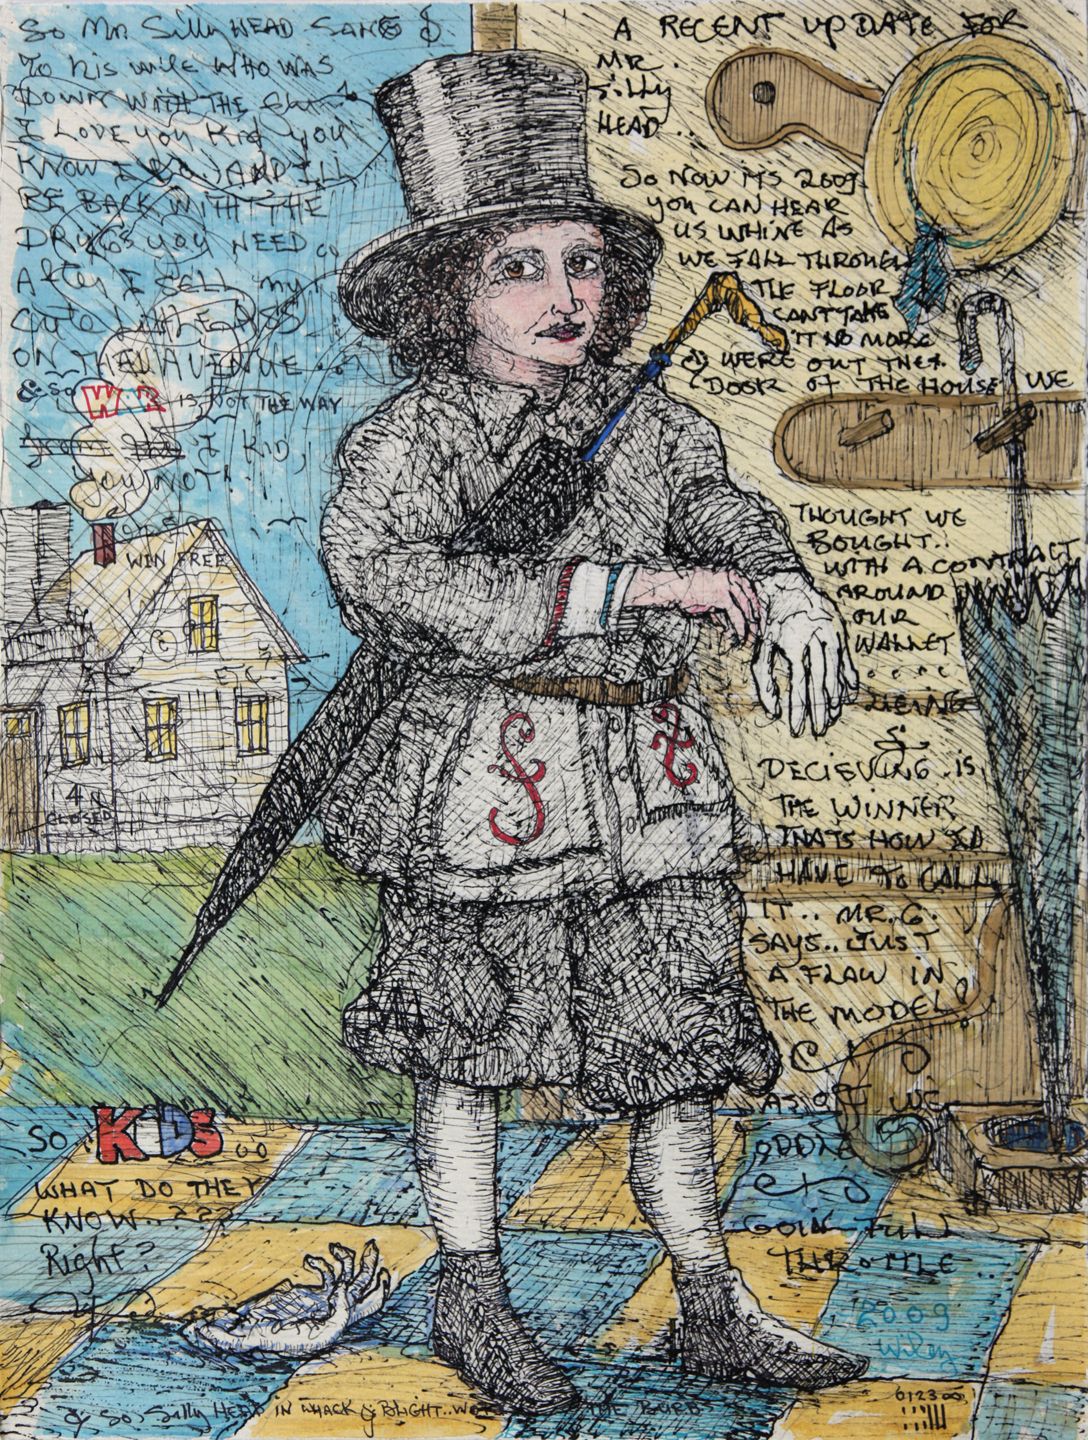 So Mr. Silly HEAD SANG &
To his wife WHO WAS
DOWN WITH THE
I LOVE YOU KID YOU
KNOW I DO, AND I'LL
BE BACK WITH THE
DRUGS YOU NEED
After I SELL my
CUTE LITTLE ASS
ON THE AVENUE...
& so WAR IS NOT THE WAY
I KID,
you NOT!
WIN FREE
©
ETC
4
CLOSED
A RECENT UPDATE FOR
MR.
Silly
HEAD..
So NOW ITS 2009
YOU CAN HEAR
US WHINE AS
WE FALL THROUGH
THE FLOOR
CANT TAKE
IT NO MORE
& WERE OUT THE
DOOR OF THE HOUSE WE
THOUGHT WE
BOUGHT..
WITH A CONTRACT
AROUND
OUR
WALLET
....
LIEING
&
DECIEVING.IS,
THE WINNER
THATS HOW I'D
HAVE TO CALL
IT.. MR.G.
SAYS..JUST
A FLAW IN
THE MODEL!
AS OFF WE
TODDLE
GOIN FULL
THROTTLE..
2009
Wiley
SO KIDS..
WHAT DO THEY
KNOW..???
Right?
& So, Silly HEAD IN WHACK & BLIGHT.. THE BURBS